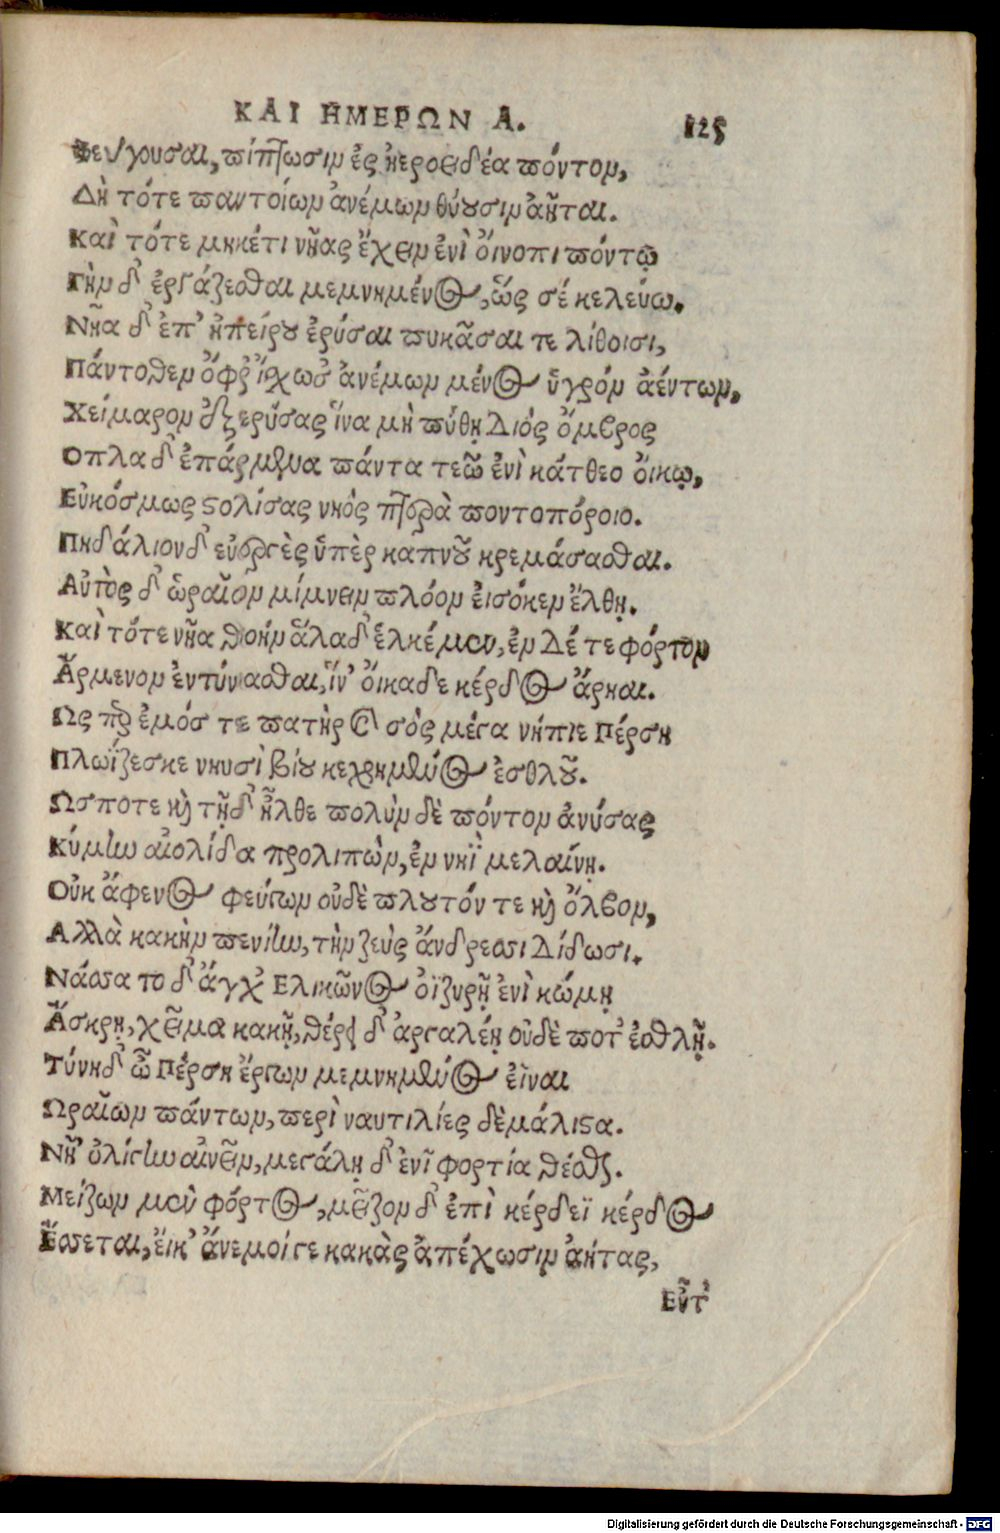 ΚΑΙ ΗΜΕΡΩΝ Α. 125
Φεύγουσαι, πίπτωσιν ἐς ἠεροειδέα πόντον,
Δὴ τότε παντοίων ἀνέμων θύουσιν ἀῆται.
Καὶ τότε μηκέτι νῆας ἔχειν ἐνὶ οἴνοπι πόντῳ
Γὴν δ' ἐργάζεσθαι μεμνημένος, ὥς σέ κελεύω.
Νῆα δ' ἐπ' ἠπείρου ἐρύσαι πυκᾶσαι τε λίθοισι,
Πάντοθεν ὄφρ' ἴσχωσ' ἀνέμων μένος ὑγρόν ἀέντων,
Χείμαρον ἐξερύσας ἵνα μὴ πύθῃ Διός ὄμβρος
Οπλα δ' ἐπάρμενα πάντα τεῶ ἐνὶ κάτθεο ὄικῳ,
Εὐκόσμως στολίσας νηός πτερὰ ποντοπόροιο.
Πηδάλιον δ' εὐεργὲς ὑπὲρ καπνοῦ κρεμάσασθαι.
Αὐτὸς δ' ὡραῖον μίμνειν πλόον ἐισόκεν ἔλθῃ.
Καὶ τότε νῆα θοήν ἅλαδ' ἑλκέμεν, ἐν Δέ τε φόρτον
Ἄρμενον ἐντύνασθαι, ἵν' ὄικαδε κέρδος ἄρηαι.
Ως περ ἐμός τε πατὴρ καὶ σός μέγα νήπιε Πέρση
Πλωΐζεσκε νηυσὶ βίου κεχρημένος ἐσθλοῦ.
Ωσποτε καὶ τῇδ' ἦλθε πολὺν δὲ πόντον ἀνύσας
Κύμην αἰολίδα προλιπὼν, ἐν νηῒ μελαίνῃ.
Οὐκ ἄφενος φεύγων οὐδὲ πλουτόν τε καὶ ὄλβον,
Αλλὰ κακὴν πενίην, τὴν ζεὺς ἄνδρεσσι Δίδωσι.
Νάσσατο δ' ἄγχ' Ελικῶνος ὀϊζυρῇ ἐνὶ κώμῃ
Ἄσκρῃ, χεῖμα κακῇ, θέρει δ' ἀργαλέῃ οὐδὲ ποτ' ἐσθλῇ.
Τύνη δ' ὦ Πέρση ἔργων μεμνημένος ἐῖναι
Ωραῖων πάντων, περὶ ναυτιλίες δὲ μάλιστα.
Νῆ' ὀλίγην αἰνεῖν, μεγάλῃ δ' ἐνῖ φορτία θέσθαι.
Μείζων μὲν φόρτος, μεῖζον δ' ἐπὶ κέρδεϊ κέρδος
Ἔσσεται, ἔικ' ἄνεμοί γε κακὰς ἀπέχωσιν ἀήτας,
Εὖτ'
Digitalisierung gefördert durch die Deutsche Forschungsgemeinschaft - DFG